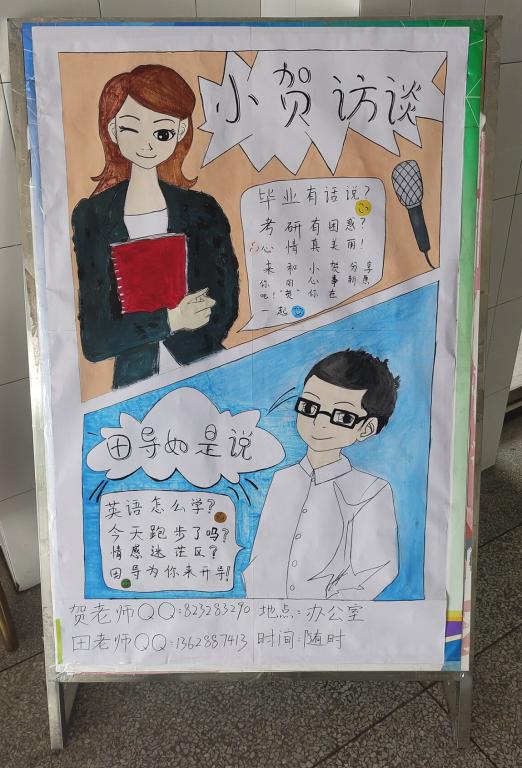 小贺访谈
毕业有话说?
考研有困惑?
心情真美丽!
来和小贺分享
你的心事新愿
吧!"贺"你在
一起
田导如是说
英语怎么学?
今天跑步了吗?
情感迷茫区?
田导为你来开导!
贺老师QQ:823283290 地点:办公室
田老师QQ:1362887413 时间:随时